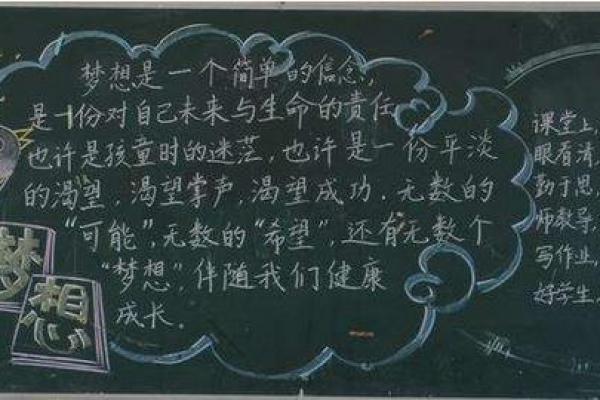 梦想是一个简单的信念,
是一份对自己未来与生命的责任,
也许是孩童时的迷茫,也许是一份平淡
的渴望,渴望掌声,渴望成功.无数的
“可能”,无数的“希望”,还有无数个
“梦想”,伴随我们健康
成长.
梦想
课堂上,
眼看清,
勤于思,
师教导,
写作业,
好学生,